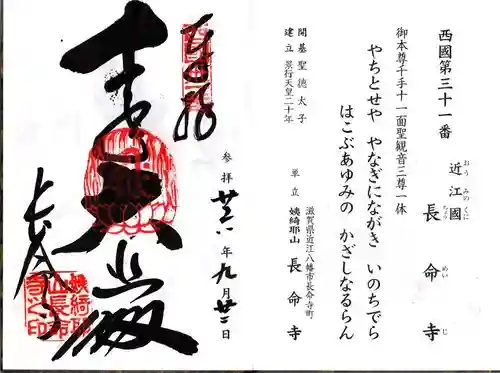 西國第三十一番
近江國 長命寺
おう みの くに ちょう めい じ
御本尊千手十一面聖観音三尊一体
やちとせや やなぎにながき いのちでら
はこぶあゆみの かざしなるらん
開基 聖徳太子
建立 景行天皇二十年
滋賀県近江八幡市長命寺町
単立 姨綺耶山 長命寺
奉拝
年九月
日
大悲殿
長命寺
姨綺耶山長命寺之印